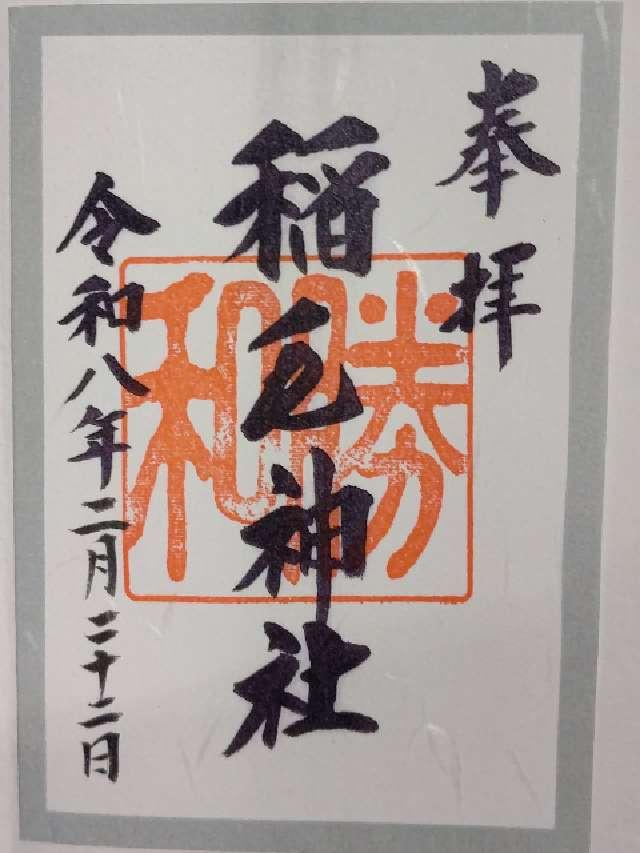 奉拝
稲毛神社
勝和
令和八年二月二十二日